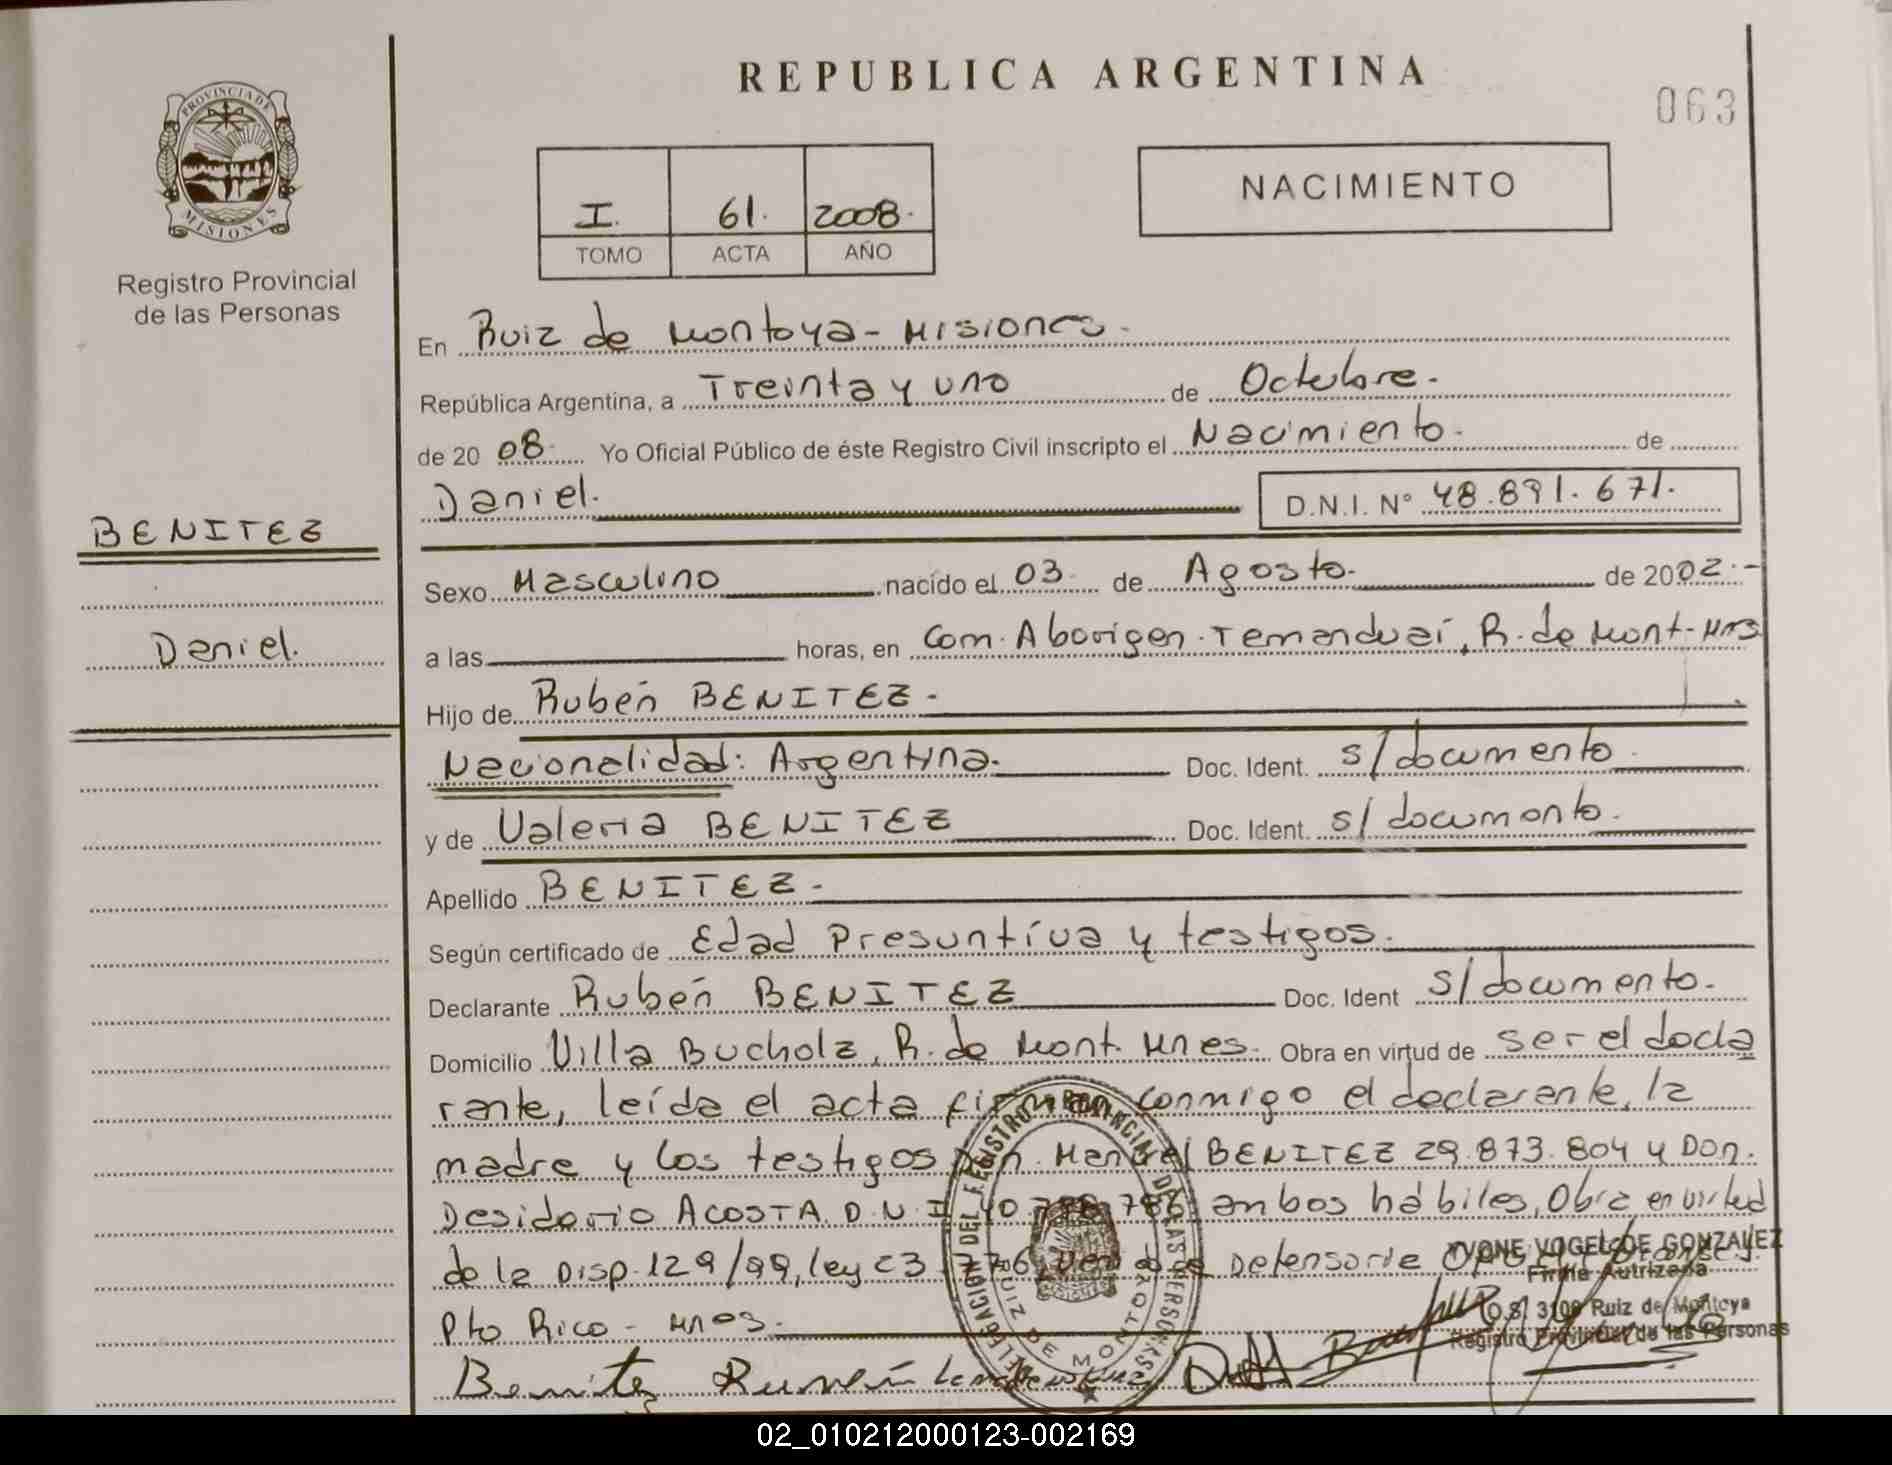 REPUBLICA ARGENTINA
063
PROVINCIA DE
MISIONES
Registro Provincial
de las Personas
I. 61. 2008.
TOMO ACTA AÑO
NACIMIENTO
En Ruiz de Montoya - Misiones.
República Argentina, a Treinta y uno de Octubre.
de 20 08. Yo Oficial Público de éste Registro Civil inscripto el Nacimiento. de
Daniel. D.N.I. N° 48.891.671.
BENITEZ
Daniel.
Sexo Masculino nacido el 03 de Agosto. de 2002.-
a las horas, en Com. Aborigen. Temanduaí, R. de Mont-Mns
Hijo de Rubén BENITEZ.
Nacionalidad: Argentina. Doc. Ident. s/documento.
y de Valeria BENITEZ Doc. Ident. s/documento.
Apellido BENITEZ.
Según certificado de Edad Presuntiva y testigos.
Declarante Rubén BENITEZ Doc. Ident s/documento.
Domicilio Villa Bucholz, R. de Mont. Mnes. Obra en virtud de ser el decla
rante, leída el acta firman conmigo el declarante, la
madre y los testigos Don BENITEZ 29.873.804 y Don.
Desiderio ACOSTA D.N.I. ambos hábiles, Obra en virtud
de la Disp. 129/99, ley Defensoría
Pto Rico - Mnes.
IVONE VOGEL DE GONZALEZ
Firma Autrizada
O.S. 3108 Ruiz de Montoya
Registro Provincial de las Personas
DELEGACION DEL REGISTRO PROVINCIAL DE LAS PERSONAS
RUIZ DE MONTOYA
Benitez Ruben
02_010212000123-002169